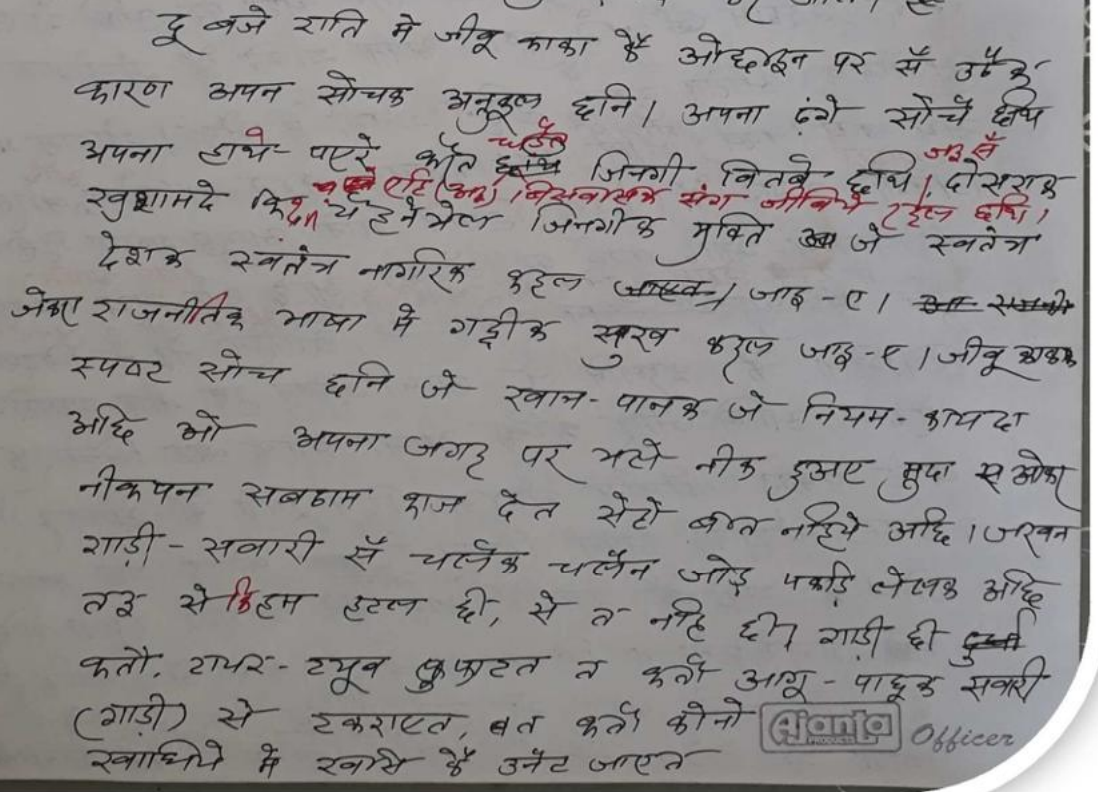 दू बजे राति मे जीबू काका कें ओछाइन पर सँ उठैक
कारण अपन सोचक अनुकूल छनि। अपना ढंगे सोचै छथि
चलैत जइ सँ
अपना हाथे-पएरे जिनगी बितबै छथि। दोसराक
एहि विसवासक संग जीविये रहल छथि।
खुशामदे जिनगीक मुक्ति जे स्वतंत्र
देशक स्वतंत्र नागरिक कहल जाइ-ए।
जेकरा राजनीतिक भाषा मे गद्दीक सुख कहल जाइ-ए। जीबू काकाक
स्पष्ट सोच छनि जे खान-पानक जे नियम-कायदा
अछि ओ अपना जगह पर भले नीक हुअए मुदा ओकर
नीकपन सबठाम काज देत सेहो बात नहिये अछि। जखन
गाड़ी-सवारी सँ चलैक चलैन जोड़ पकड़ि लेलक अछि
तइ से कि हम हटल छी, से त नहि छी। गाड़ी छी
कतौ, टायर-ट्यूब फाटत त कतौ आगू-पाछूक सवारी
(गाड़ी) से टकराएत, कतौ कोनो
खाधिये मे खसि कें उनैट जाएत
Ajanta Officer